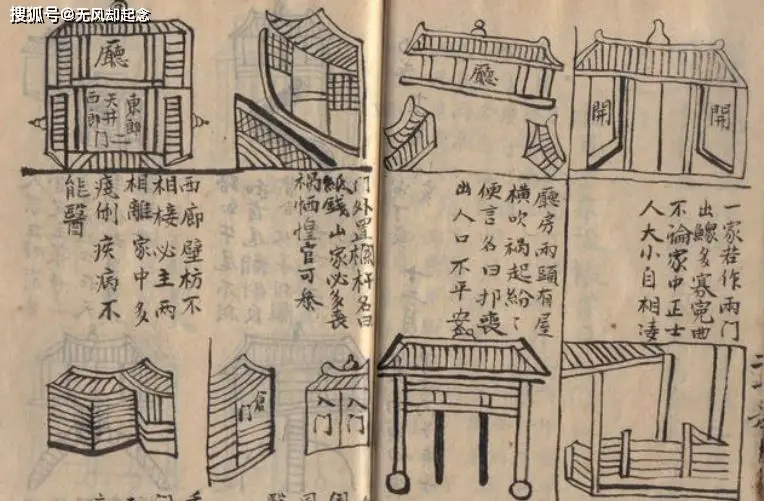 搜狐号@无风却起念
開
開
一家若作兩門
出鰥多寡冤曲
不論家中正士
人大小自相凌
廳
廳房兩頭有屋
橫吹祸起紛〻
便言名曰喪
出人口不平安
門外置欄杆名曰
紙錢山家必多喪
祸恓惶官可參
廳
東郎
天井
門
西郎
西廊壁枋不
相接必主兩
相離家中多
疾病不
能醫
入門
入門
門